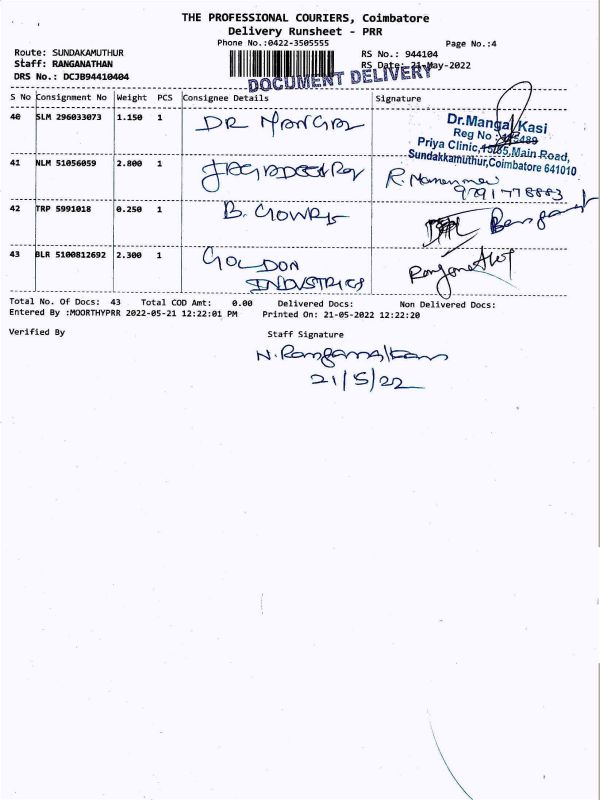 THE PROFESSIONAL COURIERS, Coimbatore
Delivery Runsheet - PRR
Phone No.:0422-3505555
Page No.:4
Route: SUNDAKAMUTHUR
RS No.: 944104
Staff: RANGANATHAN
RS Date: 21-May-2022
DRS No.: DCJB94410404
DOCUMENT DELIVERY
S No Consignment No Weight PCS Consignee Details Signature
40 SLM 296033073 1.150 1 DR MANGAL
Dr.Mangal Kasi
Reg No
Priya Clinic, Main Road,
Sundakkamuthur,Coimbatore 641010
41 NLM 51056059 2.800 1
9791778883
42 TRP 5991018 0.250 1 B. GOWRI
43 BLR 5100812692 2.300 1 GOLDON
INDUSTRIES
Total No. Of Docs: 43 Total COD Amt: 0.00 Delivered Docs: Non Delivered Docs:
Entered By :MOORTHYPRR 2022-05-21 12:22:01 PM Printed On: 21-05-2022 12:22:20
Verified By Staff Signature
N. Ranganathan
21/5/22